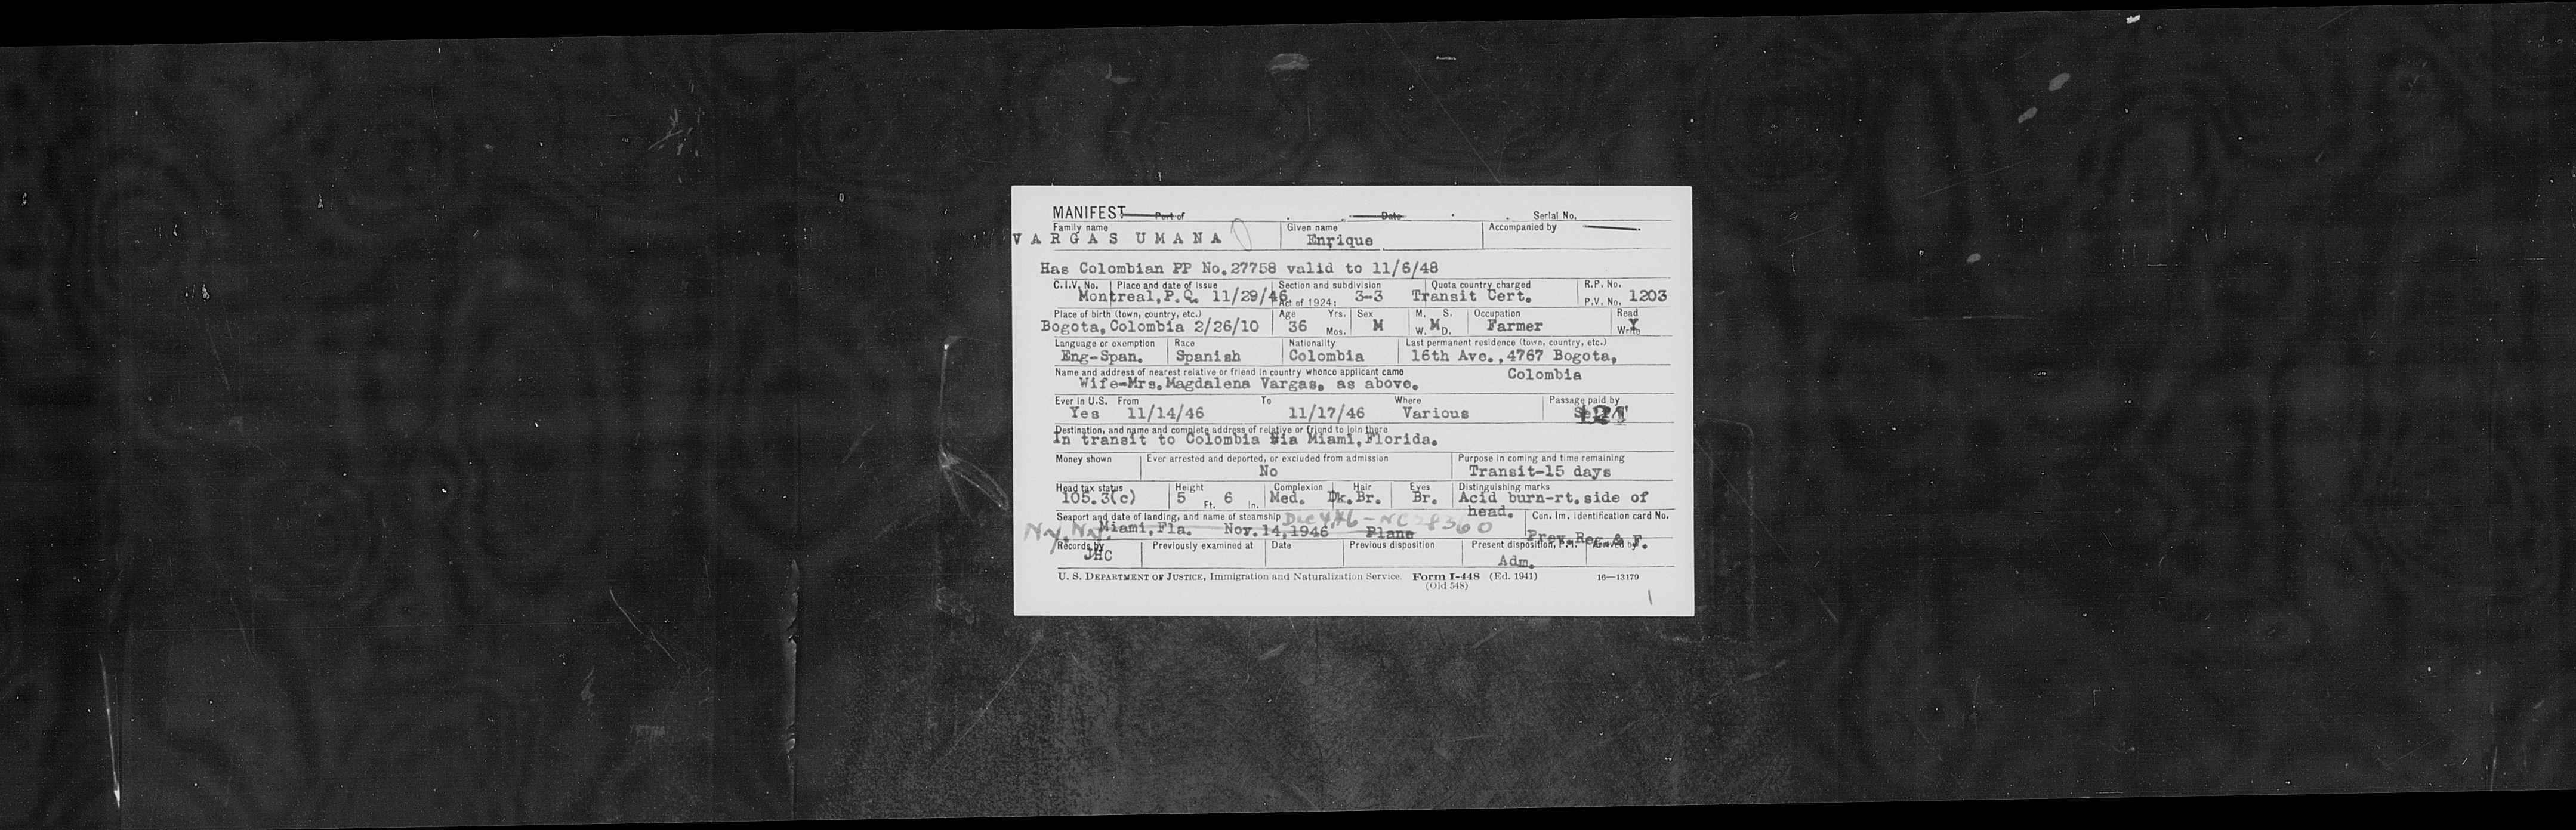 MANIFEST Port of Date Serial No.
Family name Given name Accompanied by
VARGAS UMANA Enrique
Has Colombian PP No.27758 valid to 11/6/48
C.I.V. No. Place and date of issue Section and subdivision Quota country charged R.P. No.
Montreal,P.Q. 11/29/46 Act of 1924: 3-3 Transit Cert. P.V. No. 1203
Place of birth (town, country, etc.) Age Yrs. Sex M. S. Occupation Read
Bogota, Colombia 2/26/10 36 Mos. M W. M D. Farmer Write
Language or exemption Race Nationality Last permanent residence (town, country, etc.)
Eng-Span. Spanish Colombia 16th Ave.,4767 Bogota,
Name and address of nearest relative or friend in country whence applicant came Colombia
Wife-Mrs.Magdalena Vargas, as above.
Ever in U.S. From To Where Passage paid by
Yes 11/14/46 11/17/46 Various
Destination, and name and complete address of relative or friend to join there
In transit to Colombia via Miami,Florida.
Money shown Ever arrested and deported, or excluded from admission Purpose in coming and time remaining
No Transit-15 days
Head tax status Height Complexion Hair Eyes Distinguishing marks
105.3(c) 5 Ft. 6 In. Med. Dk.Br. Br. Acid burn-rt.side of
head.
Seaport and date of landing, and name of steamship Con. Im. Identification card No.
N.Y. N.Y. Miami,Fla. Nov.14,1946 Plane Prev.Reg.& F.
Records by Previously examined at Date Previous disposition Present disposition
JHC Adm.
U. S. DEPARTMENT OF JUSTICE, Immigration and Naturalization Service. Form I-448 (Ed. 1941) 16—13179
(Old 548)